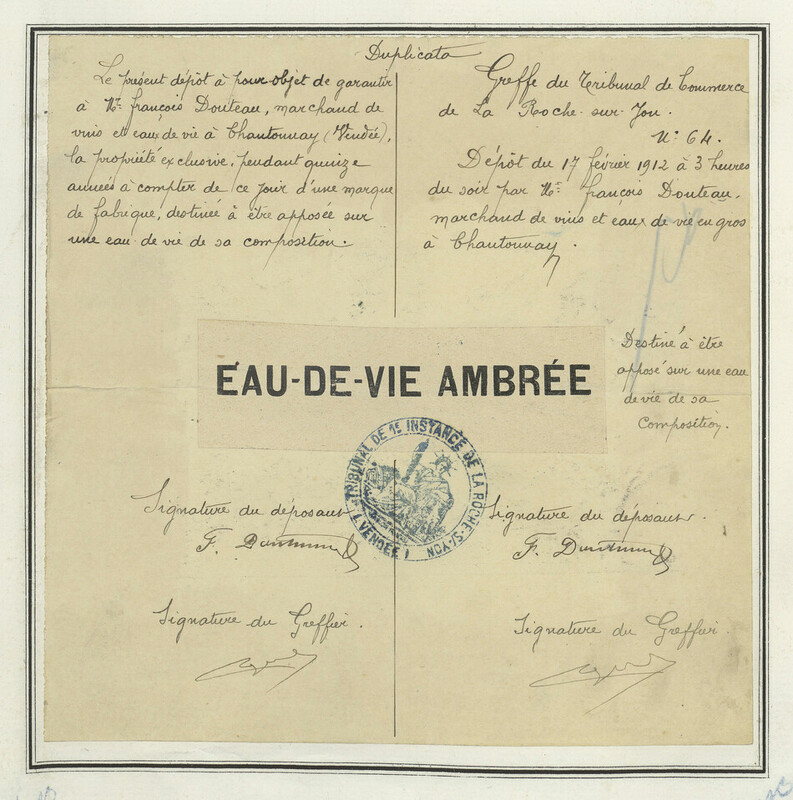 Duplicata
Le présent dépôt à pour objet de garantir
à Mr. François Douteau, marchand de
vins et eaux de vie à Chantonnay (Vendée),
la propriété exclusive, pendant quinze
années à compter de ce jour d'une marque
de fabrique, destinée à être apposée sur
une eau de vie de sa composition.
Greffe du Tribunal de Commerce
de La Roche-sur-Yon.
N° 64.
Dépôt du 17 février 1912 à 3 heures
du soir par Mr. François Douteau,
marchand de vins et eaux de vie en gros
à Chantonnay.
EAU-DE-VIE AMBRÉE
Destiné à être
apposé sur une eau
de vie de sa
Composition.
TRIBUNAL DE 1E INSTANCE DE LA ROCHE-S/-YON
(VENDÉE)
Signature du déposant
F. Douteau
Signature du déposant.
F. Douteau
Signature du Greffier.
Signature du Greffier.